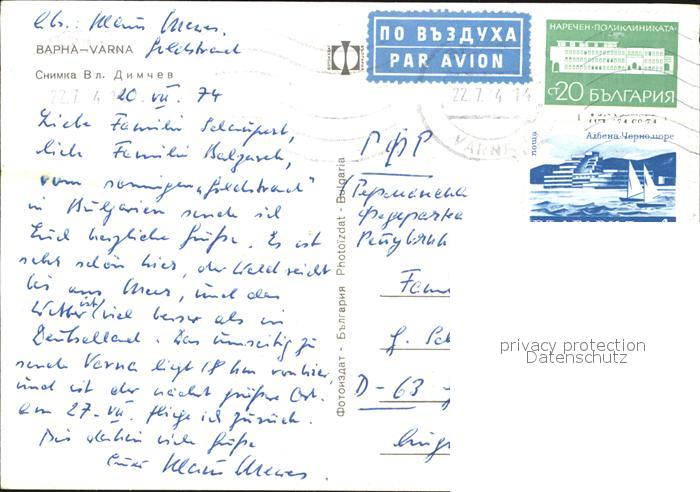 Abs.: Klaus Mewes.
ВАРНА–VARNA Goldstrand
Снимка Вл. Димчев
20. VII. 74
Liebe Familie
liebe Familie
vom sonnigen „Goldstrand"
in Bulgarien sende ich
Euch herzliche Grüße. Es ist
sehr schön hier, der Wald reicht
bis ans Meer, und das
Wetter ist viel besser als in
Deutschland. Das umseitig zu
sehende Varna liegt 18 km von hier,
und ist der nächst größere Ort.
Am 27. VII. fliege ich zurück.
Bis dahin viele Grüße
Euer Klaus Mewes.
Фотоиздат - България Photoizdat - Bulgaria
ПО ВЪЗДУХА
PAR AVION
НАРЕЧЕН·ПОЛИКЛИНИКАТА·
СТ 20 БЪЛГАРИЯ
22.7.74 14
VARNA
поща
Албена Черноморе
ГФР
Германска
Федерална
Република
Fam
G. Sc
D-63
privacy protection
Datenschutz